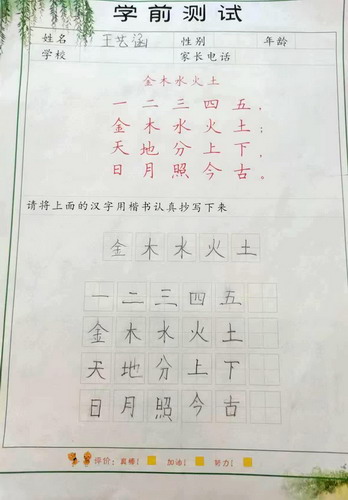 学前测试
姓名 王艺涵 性别 年龄
学校 家长电话
金木水火土
一二三四五，
金木水火土；
天地分上下，
日月照今古。
请将上面的汉字用楷书认真抄写下来
金木水火土
一二三四五
金木水火土
天地分上下
日月照今古
评价：真棒！ 加油！ 努力！